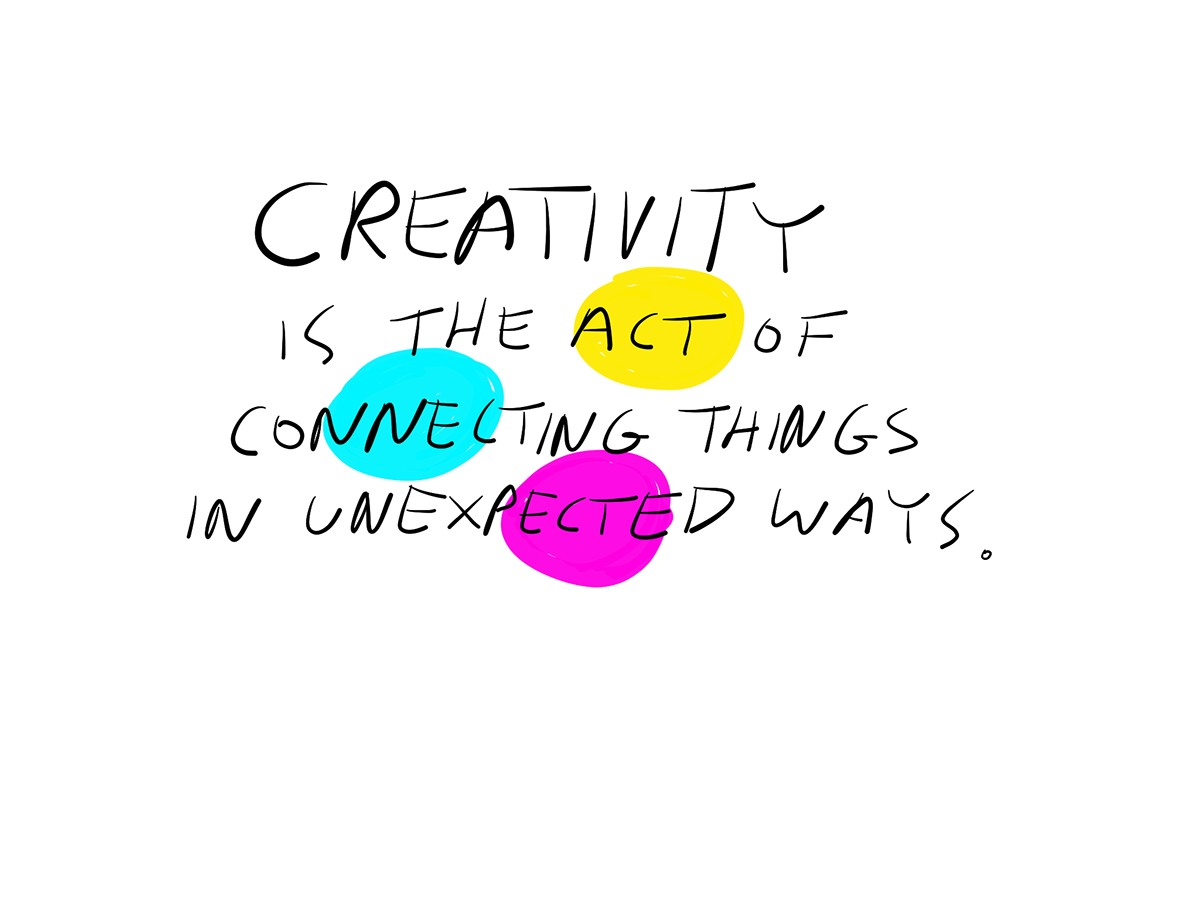 CREATIVITY
IS THE ACT OF
CONNECTING THINGS
IN UNEXPECTED WAYS.